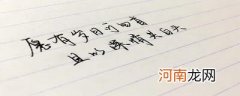 愿有岁月可回首
且以深情共白头
河南